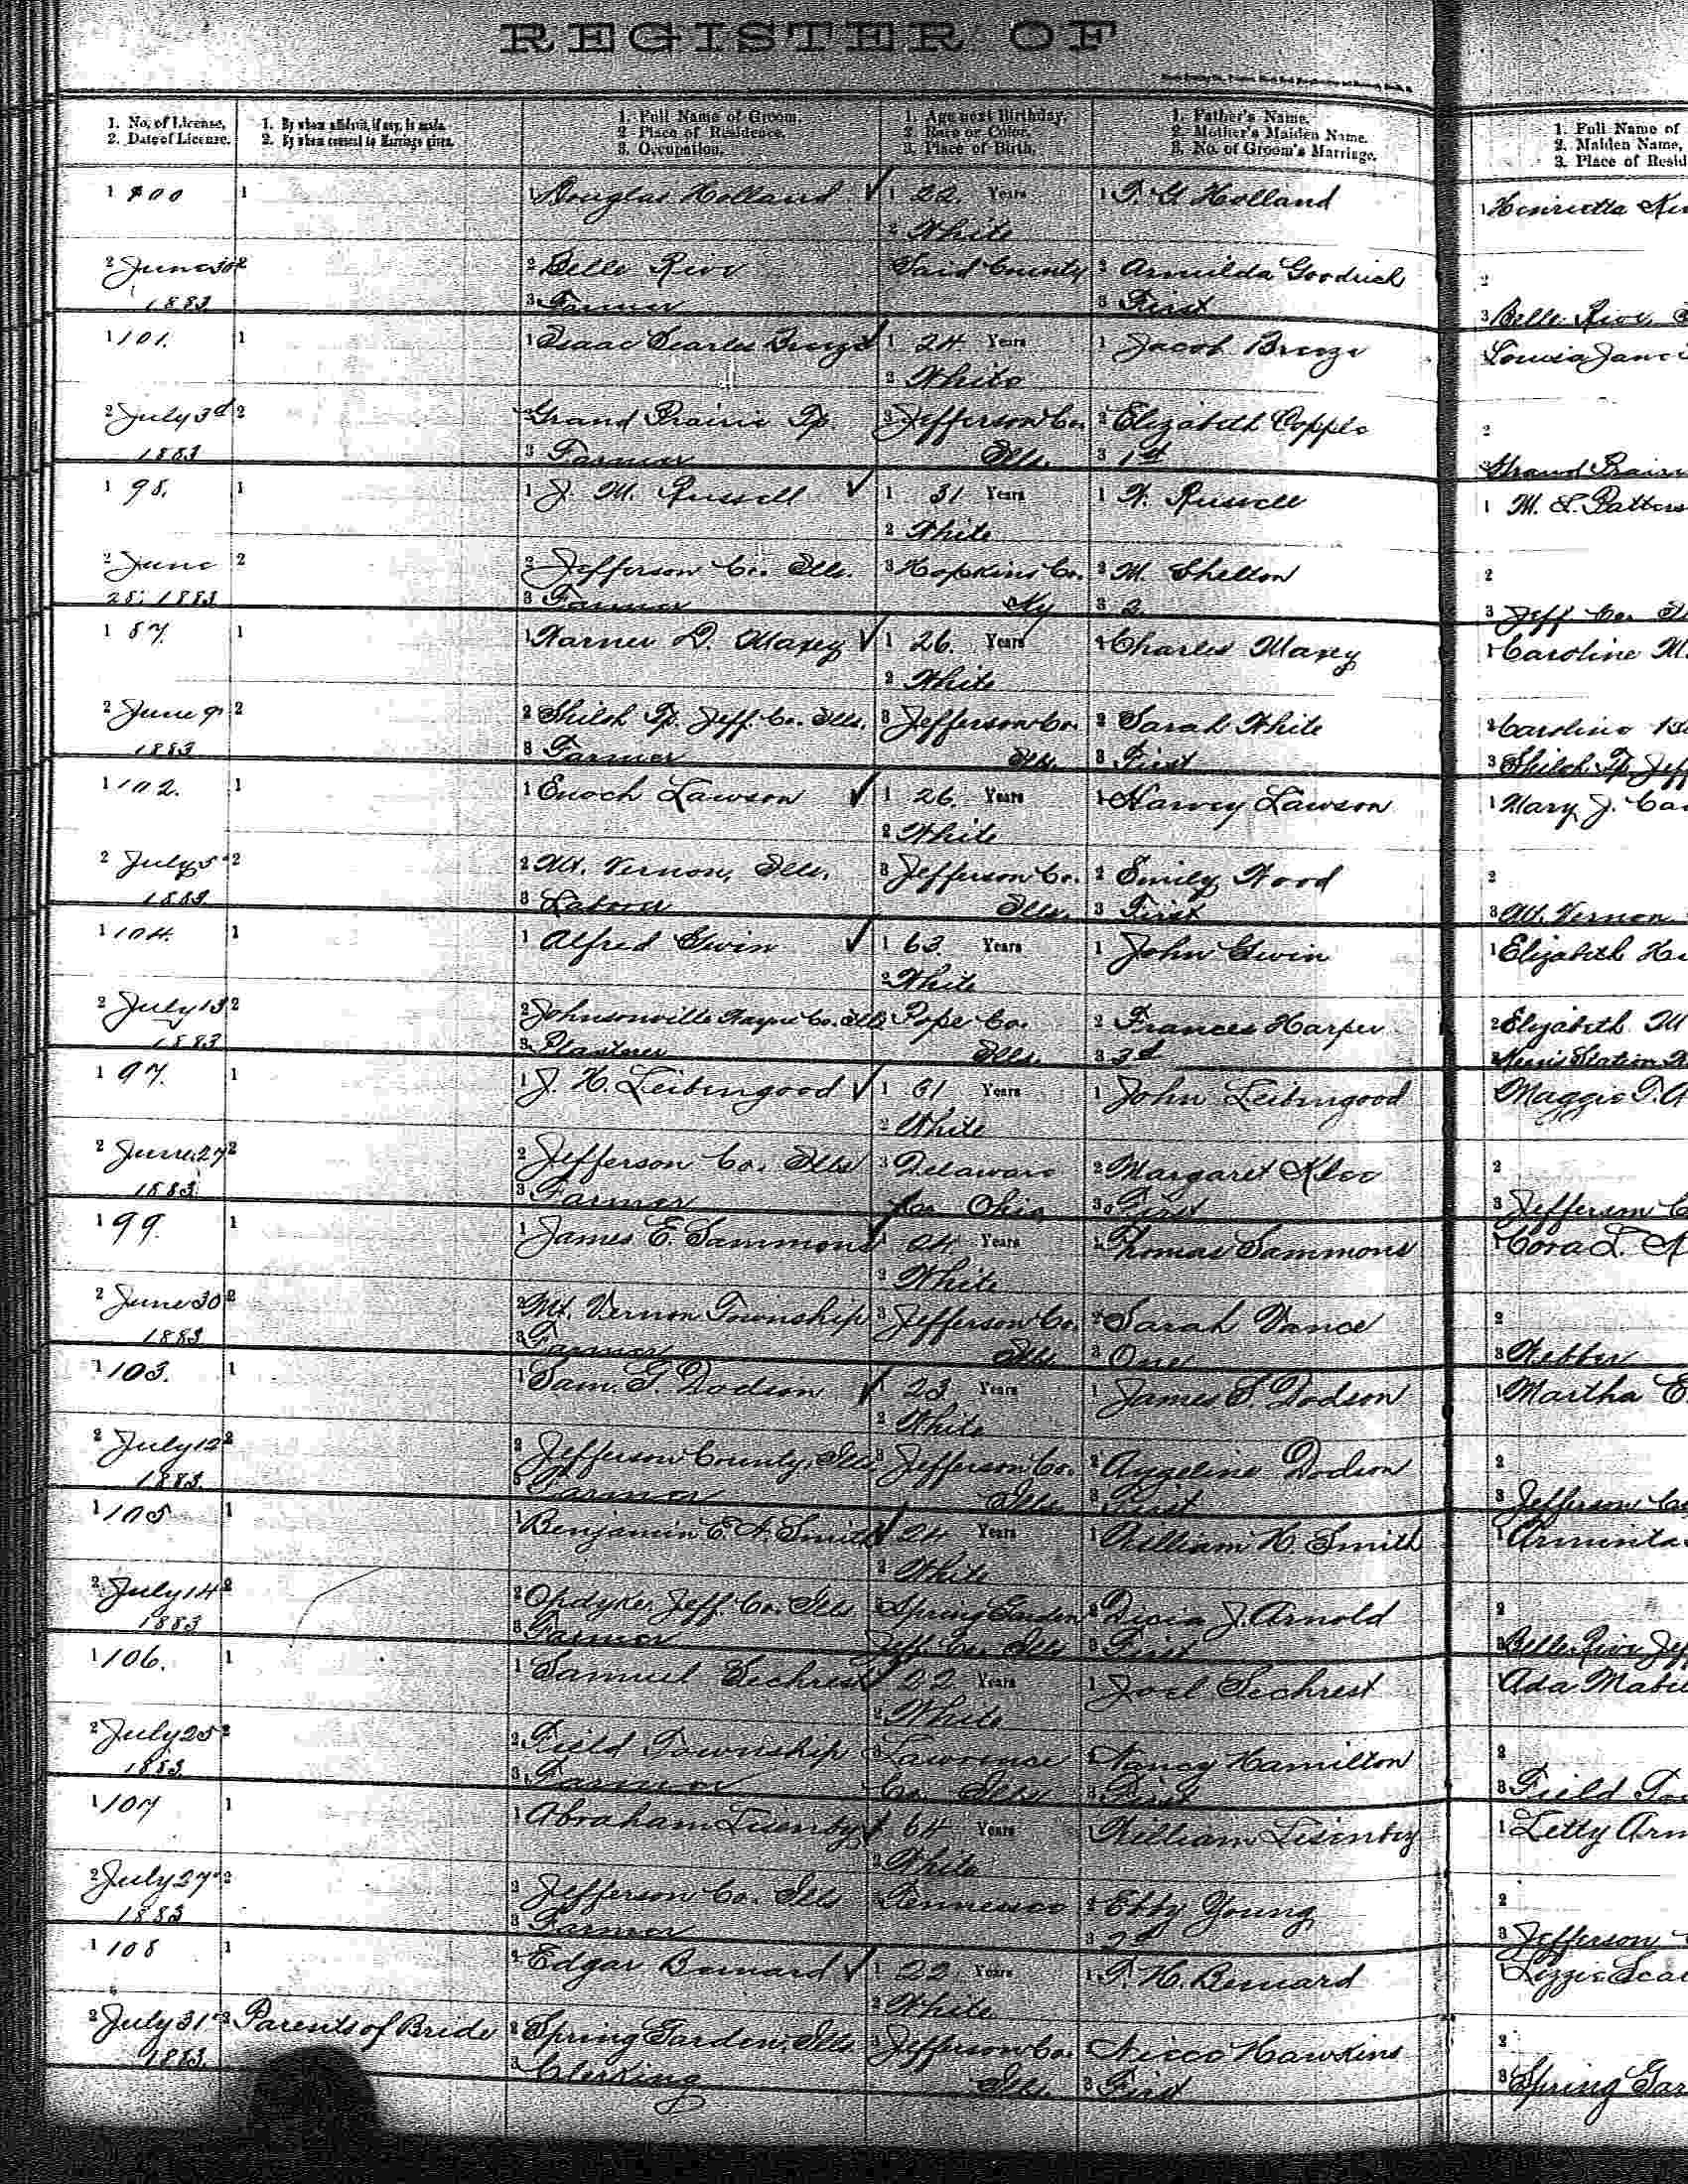 REGISTER OF
1. No. of License.
2. Date of License.
1. By whom affidavit, if any, is made.
2. By whom consent to Marriage given.
1. Full Name of Groom.
2. Place of Residence.
3. Occupation.
1. Age next Birthday.
2. Race or Color.
3. Place of Birth.
1. Father's Name.
2. Mother's Maiden Name.
3. No. of Groom's Marriage.
1. Full Name of
2. Maiden Name,
3. Place of Resid
1 100 1 1 Douglas Holland ✓ 1 22 Years 1 T. G. Holland 1 Henrietta
2 White
2 June 30 2 2 Belle Rive Said County 2 Armilda Goodrich 2
1883 3 Farmer 3 First 3 Belle Rive
1 101. 1 1 Isaac Searles Breeze ✓ 1 24 Years 1 Jacob Breeze Louisa Jane
2 White
2 July 3d 2 2 Grand Prairie Tp. 3 Jefferson Co. 2 Elizabeth Copple 2
1883 3 Farmer Ills. 3 1st Grand Prairi
1 98. 1 1 J. M. Russell ✓ 1 31 Years 1 W. Russell 1 M. L. Patters
2 White
2 June 2 2 Jefferson Co. Ills. 3 Hopkins Co. 2 M. Shelton 2
28, 1883 3 Farmer Ky 3 2. 3 Jeff. Co.
1 87. 1 1 Warner D. Maxey ✓ 1 26. Years 1 Charles Maxey 1 Caroline M.
2 White
2 June 9 2 2 Shiloh Tp. Jeff. Co. Ills. 3 Jefferson Co. 2 Sarah White 2 Caroline
1883 3 Farmer Ills. 3 First 3 Shiloh Tp Jeff
1 102. 1 1 Enoch Lawson ✓ 1 26. Years 1 Harvey Lawson 1 Mary J. Ca
2 White
2 July 5 2 2 Mt. Vernon, Ills. 3 Jefferson Co. 2 Emily Wood 2
1883 3 Labour Ills. 3 First 3 Mt. Vernon
1 104. 1 1 Alfred Gwin ✓ 1 63. Years 1 John Gwin 1 Elizabeth
2 White
2 July 13 2 2 Johnsonville Wayne Co. Ills 3 Pope Co. 2 Frances Harper 2 Elizabeth M
1883 3 Plasterer Ills. 3 3d Station
1 97. 1 1 J. H. Leibengood ✓ 1 31 Years 1 John Leibengood Maggie T.
2 White
2 June 27 2 2 Jefferson Co. Ills 3 Delaware 2 Margaret Klee 2
1883. 3 Farmer Co Ohio 3 First 3 Jefferson C
1 99. 1 1 James E. Sammons ✓ 1 24 Years 1 Thomas Sammons 1 Cora L.
2 White
2 June 30 2 2 Mt. Vernon Township 3 Jefferson Co. 2 Sarah Vance 2
1883 3 Farmer Ills 3 One 3 Webber
1 103. 1 1 Sam. T. Dodson ✓ 1 23 Years 1 James S. Dodson 1 Martha E.
2 White
2 July 12 2 2 Jefferson County, Ills 3 Jefferson Co. 2 Angeline Dodson 2
1883. 3 Farmer Ills 3 First 3 Jefferson Co
1 105 1 1 Benjamin E. N. Smith ✓ 24 Years 1 William H. Smith 1 Arminta
2 White
2 July 14 2 2 Opdyke, Jeff. Co. Ills 3 Spring Garden 2 Dicia J. Arnold 2
1883 3 Farmer Jeff. Co. Ills 3 First 3 Belle Rive Jef
1 106. 1 1 Samuel Sechrest ✓ 22 Years 1 Joel Sechrest Ada
2 White
2 July 25 2 2 Field Township 3 Lawrence 2 Nancy Hamilton 2
1883. 3 Farmer Co. Ills 3 First 3 Field To
1 107 1 1 Abraham Lisenby ✓ 64 Years 1 William Lisenby 1 Letty Arn
2 White
2 July 27 2 2 Jefferson Co. Ills Tennessee 2 Ebby Young 2
1883 3 Farmer 3 2d 3 Jefferson
1 108 1 1 Edgar Bernard ✓ 1 22 Years 1 T. H. Bernard 1 Lizzie
2 White
2 July 31 2 Parents of Bride 2 Spring Garden, Ills 3 Jefferson Co. Hawkins 2
1883. 3 Clerking Ills 3 First 3 Spring Gar